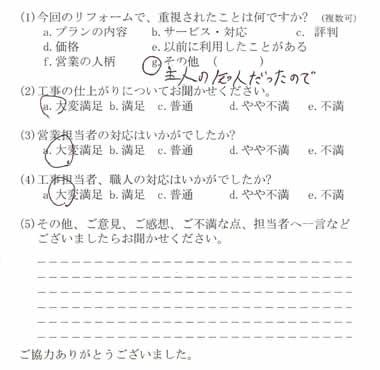 (1)今回のリフォームで、重視されたことは何ですか? (複数可)
a.プランの内容 b.サービス・対応 c. 評判
d.価格 e.以前に利用したことがある
f.営業の人柄 g.その他 ( )
主人の知人だったので
(2)工事の仕上がりについてお聞かせください。
a.大変満足 b.満足 c.普通 d.やや不満 e.不満
(3)営業担当者の対応はいかがでしたか?
a.大変満足 b.満足 c.普通 d.やや不満 e.不満
(4)工事担当者、職人の対応はいかがでしたか?
a.大変満足 b.満足 c.普通 d.やや不満 e.不満
(5)その他、ご意見、ご感想、ご不満な点、担当者へ一言など
ございましたらお聞かせください。
ご協力ありがとうございました。